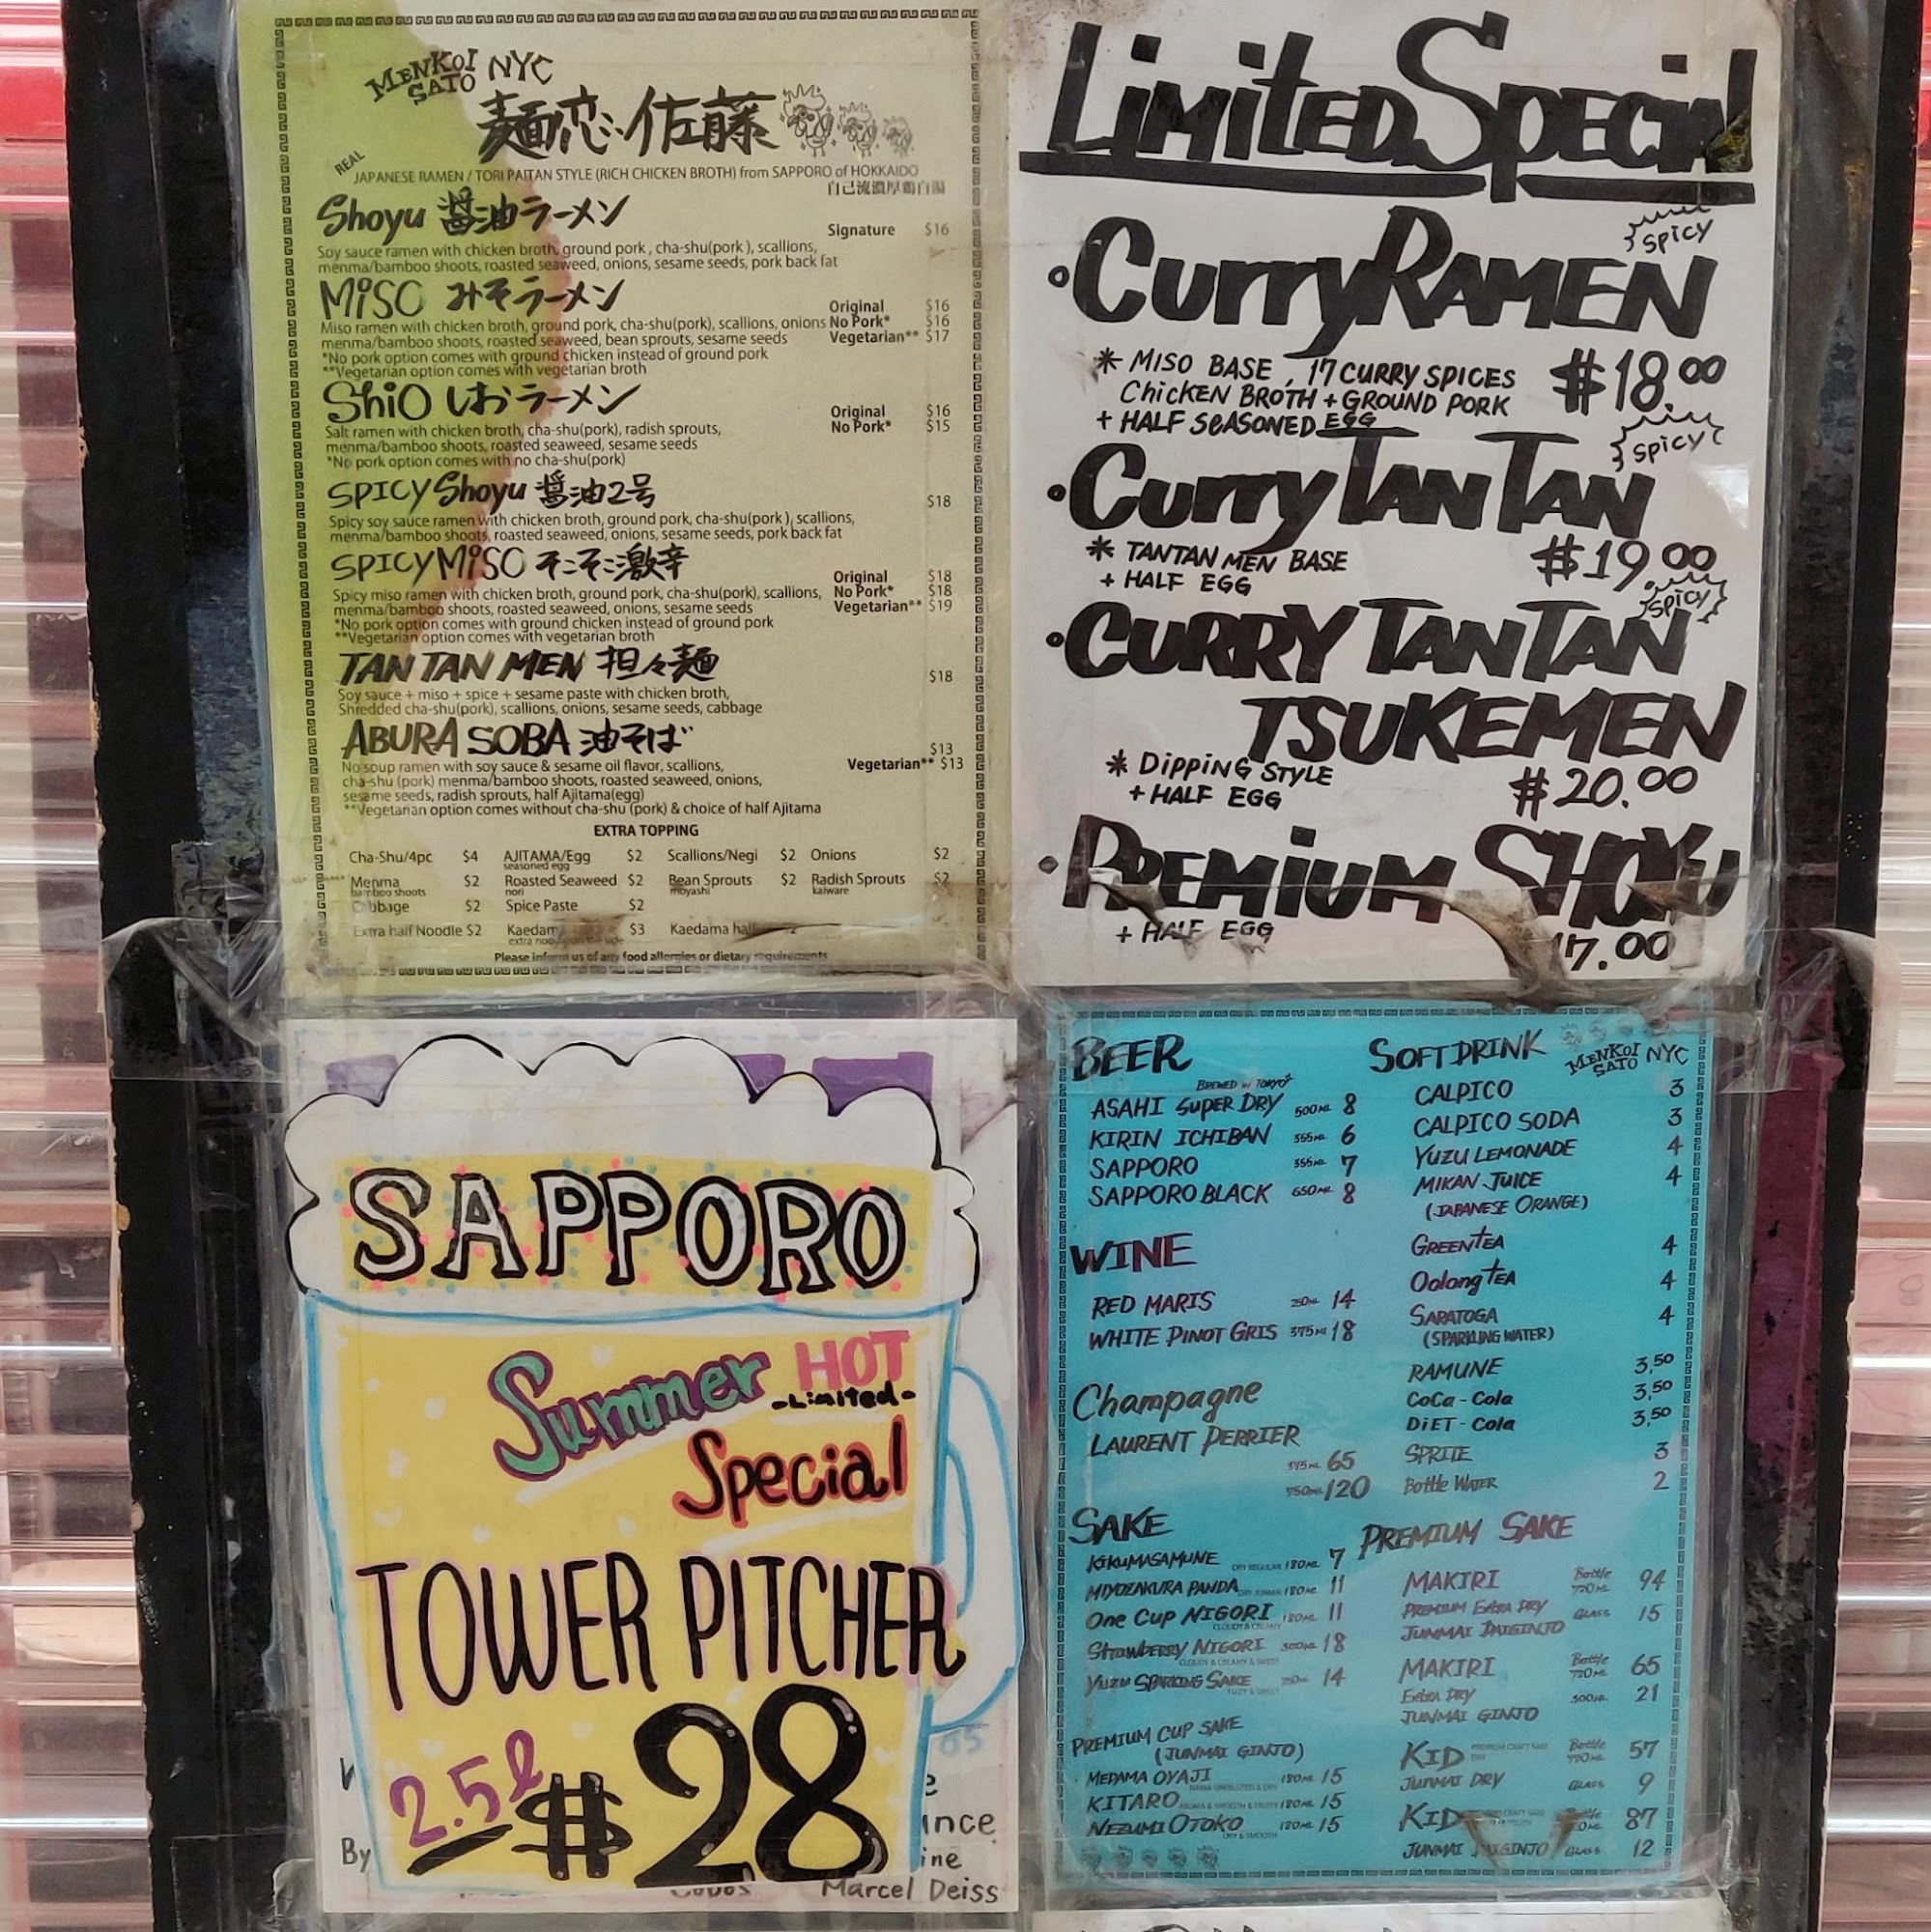 MENKOI SATO NYC
麺恋:佐藤
REAL
JAPANESE RAMEN / TORI PAITAN STYLE (RICH CHICKEN BROTH) from SAPPORO of HOKKAIDO
自己流濃厚鶏白湯
Shoyu 醤油ラーメン
Signature $16
Soy sauce ramen with chicken broth, ground pork , cha-shu(pork ), scallions,
menma/bamboo shoots, roasted seaweed, onions, sesame seeds, pork back fat
MISO みそラーメン
Original $16
Miso ramen with chicken broth, ground pork, cha-shu(pork), scallions, onions No Pork* $16
menma/bamboo shoots, roasted seaweed, bean sprouts, sesame seeds Vegetarian** $17
*No pork option comes with ground chicken instead of ground pork
**Vegetarian option comes with vegetarian broth
ShiO しおラーメン
Original $16
Salt ramen with chicken broth, cha-shu(pork), radish sprouts, No Pork* $15
menma/bamboo shoots, roasted seaweed, sesame seeds
*No pork option comes with no cha-shu(pork)
SPICY Shoyu 醤油2号
$18
Spicy soy sauce ramen with chicken broth, ground pork, cha-shu(pork ), scallions,
menma/bamboo shoots, roasted seaweed, onions, sesame seeds, pork back fat
SPICY MISO そこそこ激辛
Original $18
Spicy miso ramen with chicken broth, ground pork, cha-shu(pork), scallions, No Pork* $18
menma/bamboo shoots, roasted seaweed, onions, sesame seeds Vegetarian** $19
*No pork option comes with ground chicken instead of ground pork
**Vegetarian option comes with vegetarian broth
TAN TAN MEN 担々麺
$18
Soy sauce + miso + spice + sesame paste with chicken broth,
Shredded cha-shu(pork), scallions, onions, sesame seeds, cabbage
ABURA SOBA 油そば
$13
No soup ramen with soy sauce & sesame oil flavor, scallions, Vegetarian** $13
cha-shu (pork) menma/bamboo shoots, roasted seaweed, onions,
sesame seeds, radish sprouts, half Ajitama(egg)
**Vegetarian option comes without cha-shu (pork) & choice of half Ajitama
EXTRA TOPPING
Cha-Shu/4pc $4 AJITAMA/Egg $2 Scallions/Negi $2 Onions $2
seasoned egg
Menma $2 Roasted Seaweed $2 Bean Sprouts $2 Radish Sprouts $2
bamboo shoots nori moyashi kaiware
Cabbage $2 Spice Paste $2
Extra half Noodle $2 Kaedama $3 Kaedama half
extra noodle on the side
Please inform us of any food allergies or dietary requirements
Limited Special
spicy
• Curry RAMEN
* MISO BASE, 17 CURRY SPICES $18.00
Chicken BROTH + GROUND PORK
+ HALF SEASONED EGG
spicy
• Curry TAN TAN
* TANTAN MEN BASE $19.00
+ HALF EGG
spicy
• CURRY TAN TAN
TSUKEMEN
* DippiNG STYLE
+ HALF EGG $20.00
• PREMIUM SHOYU
+ HALF EGG
17.00
SAPPORO
Summer HOT
-Limited-
Special
TOWER PITCHER
2.5ℓ $28
By
Marcel Deiss
BEER
BREWED in TOKYO
ASAHI SUPER DRY 500ML 8
KIRIN ICHIBAN 355ML 6
SAPPORO 355ML 7
SAPPORO BLACK 650ML 8
WINE
RED MARIS 250ML 14
WHITE PINOT GRIS 375ML 18
Champagne
LAURENT PERRIER
375ML 65
750ML 120
SAKE
KIKUMASAMUNE DRY REGULAR 180ML 7
MIYOZAKURA PANDA DRY JUNMAI 180ML 11
One Cup NIGORI 180ML 11
CLOUDY & CREAMY
Strawberry NIGORI 300ML 18
CLOUDY & CREAMY & SWEET
Yuzu SPARKING SAKE 250ML 14
FIZZY & SWEET
PREMIUM CUP SAKE
(JUNMAI GINJO)
MEDAMA OYAJI 180ML 15
KITARO 180ML 15
NEZUMI OTOKO 180ML 15
DRY & SMOOTH
SOFT DRINK
MENKOI SATO NYC
CALPICO 3
CALPICO SODA 3
YUZU LEMONADE 4
MIKAN JUICE 4
(JAPANESE ORANGE)
GREEN TEA 4
Oolong TEA 4
SARATOGA 4
(SPARKLING WATER)
RAMUNE 3,50
CoCa-Cola 3,50
DiET-Cola 3,50
SPRITE 3
Bottle WATER 2
PREMIUM SAKE
MAKIRI Bottle 720ML 94
PREMIUM EXTRA DRY GLASS 15
JUNMAI DAIGINJO
MAKIRI Bottle 720ML 65
EXTRA DRY 300ML 21
JUNMAI GINJO
KID PREMIUM CRAFT SAKE Bottle 720ML 57
DRY
JUNMAI DRY GLASS 9
KID 87
JUNMAI DAIGINJO GLASS 12